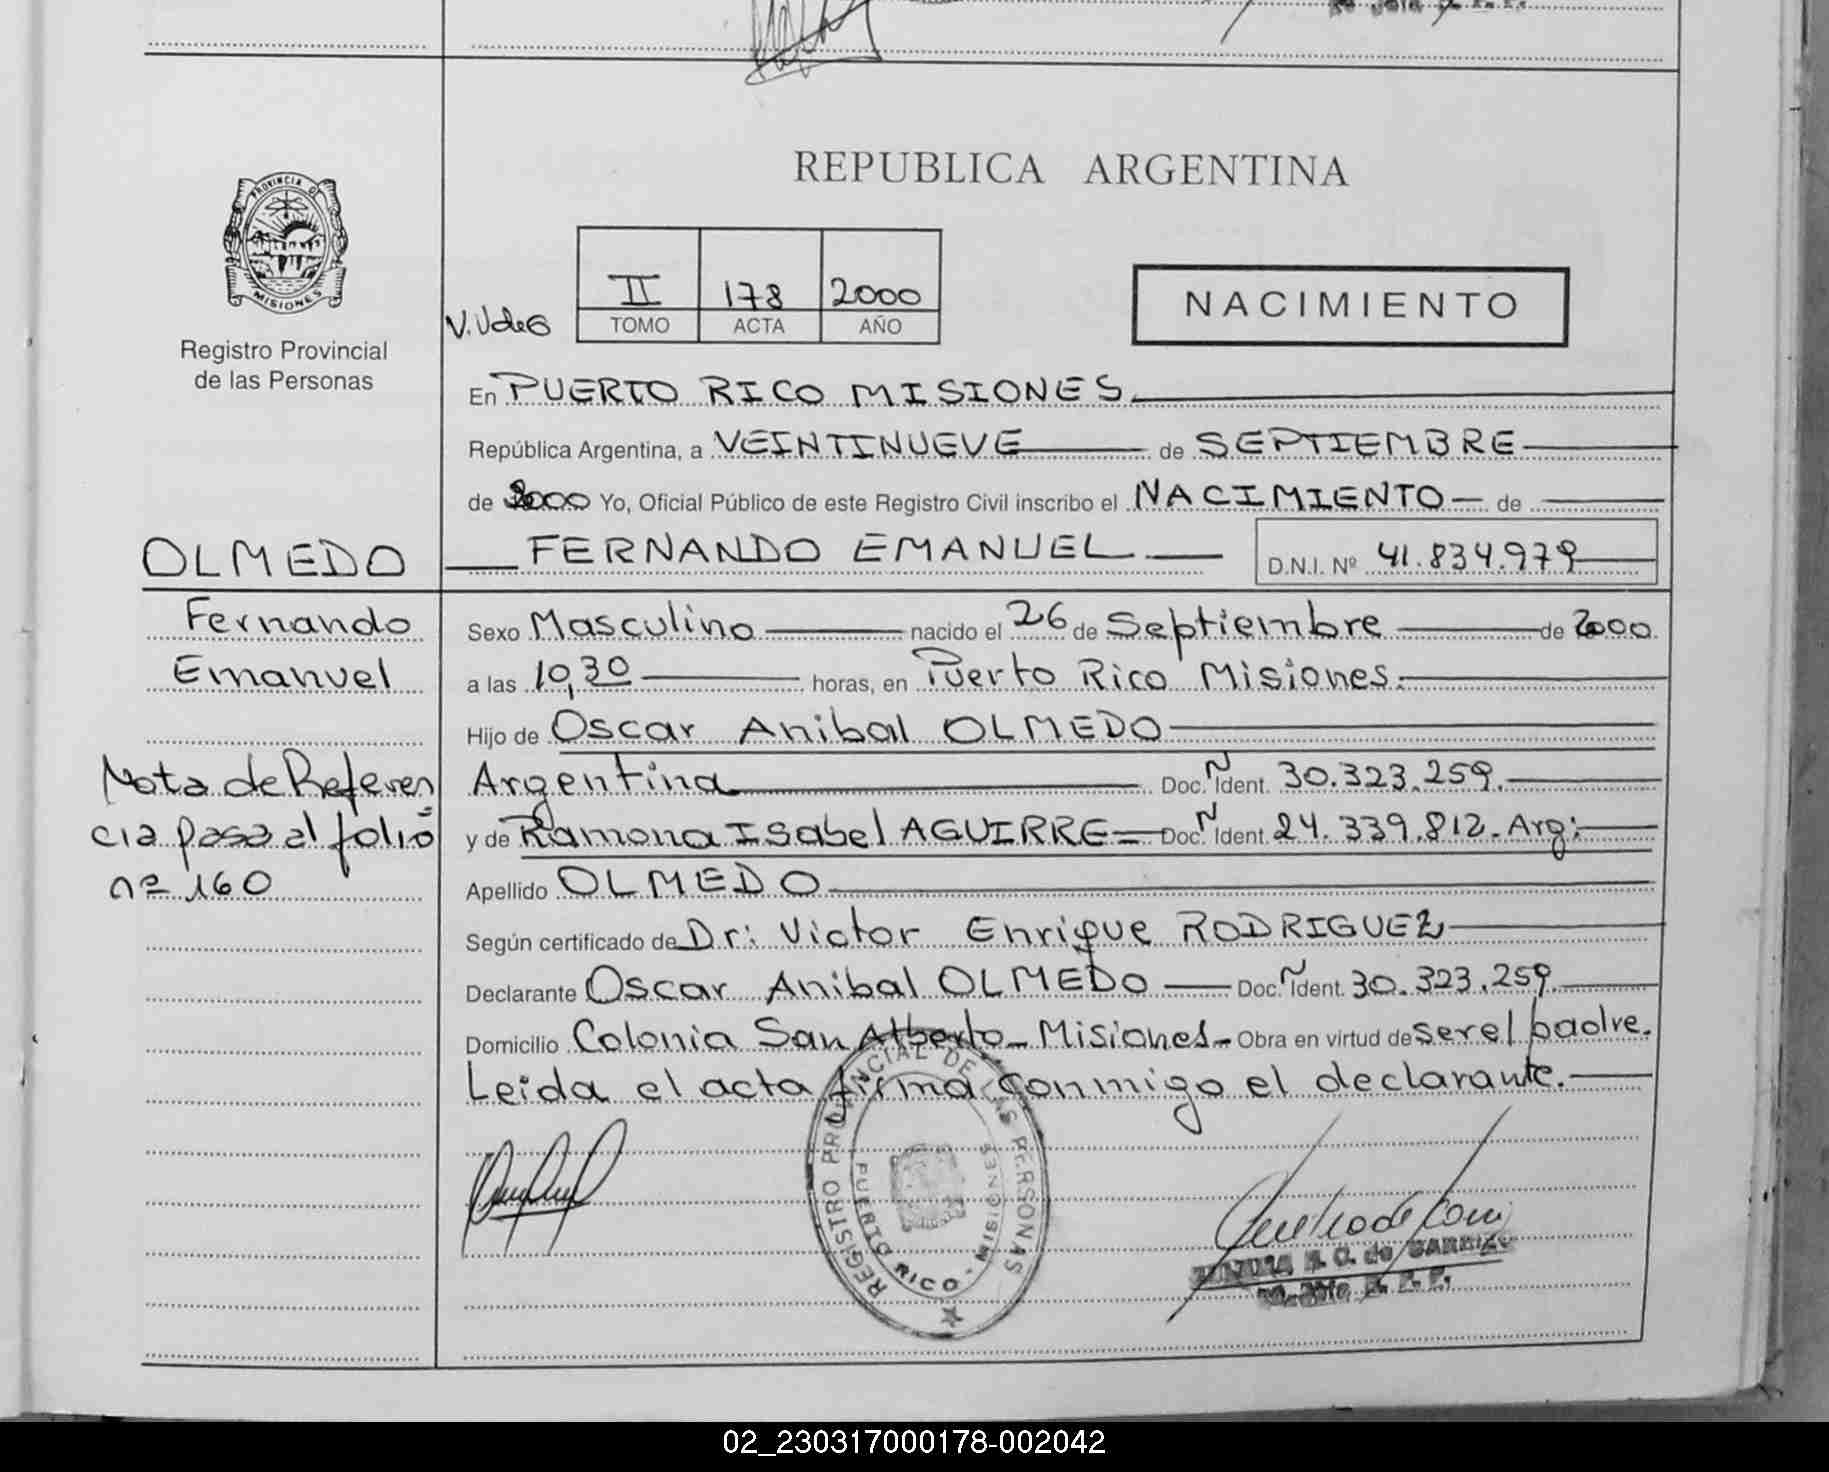 REPUBLICA ARGENTINA
PROVINCIA DE
MISIONES
Registro Provincial
de las Personas
II 178 2000
TOMO ACTA AÑO
NACIMIENTO
En PUERTO RICO MISIONES.
República Argentina, a VEINTINUEVE de SEPTIEMBRE
de 2000 Yo, Oficial Público de este Registro Civil inscribo el NACIMIENTO de
OLMEDO
FERNANDO EMANUEL
D.N.I. Nº 41.834.979
Fernando
Emanuel
Sexo Masculino nacido el 26 de Septiembre de 2000
a las 10,30 horas, en Puerto Rico Misiones.
Hijo de Oscar Anibal OLMEDO
Argentina Doc. Ident. 30.323.259.
y de Ramona Isabel AGUIRRE Doc. Ident. 24.339.812. Arg:
Apellido OLMEDO
Según certificado de Dr: Victor Enrique RODRIGUEZ
Declarante Oscar Anibal OLMEDO Doc. Ident. 30.323.259.
Domicilio Colonia San Alberto - Misiones - Obra en virtud de ser el padre.
Leida el acta firma conmigo el declarante.
Nota de Referen
cia pasa al folio
nº 160
REGISTRO PROVINCIAL DE LAS PERSONAS
PUERTO RICO - MISIONES
02_230317000178-002042